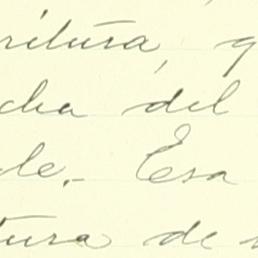 ritura, q
cha del
le.- Esa
tura de